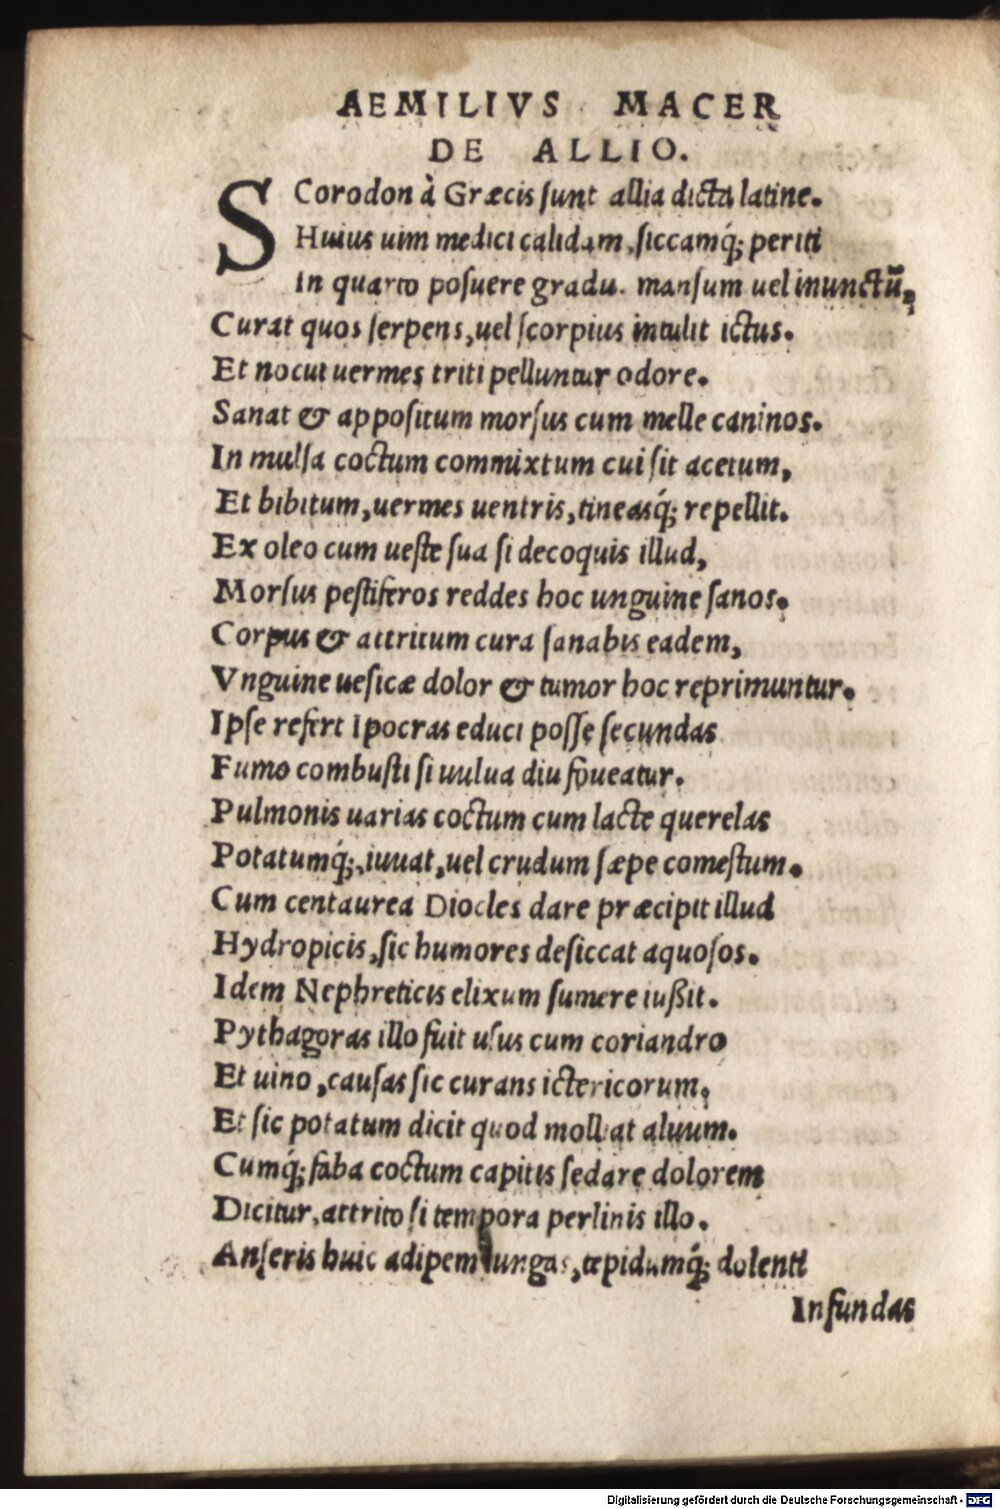 AEMILIVS MACER
DE ALLIO.
SCorodon à Græcis sunt allia dicta latine.
Huius uim medici calidam, siccamq́; periti
In quarto posuere gradu. mansum uel inunctū,
Curat quos serpens, uel scorpius intulit ictus.
Et nocui uermes triti pelluntur odore.
Sanat & appositum morsus cum melle caninos.
In mulsa coctum commixtum cui sit acetum,
Et bibitum, uermes uentris, tineasq́; repellit.
Ex oleo cum ueste sua si decoquis illud,
Morsus pestiferos reddes hoc unguine sanos.
Corpus & attritum cura sanabis eadem,
Vnguine uesicæ dolor & tumor hoc reprimuntur.
Ipse refert Ipocras educi posse secundas
Fumo combusti si uulua diu foueatur.
Pulmonis uarias coctum cum lacte querelas
Potatumq́;, iuuat, uel crudum sæpe comestum.
Cum centaurea Diocles dare præcipit illud
Hydropicis, sic humores desiccat aquosos.
Idem Nephreticis elixum sumere iußit.
Pythagoras illo fuit usus cum coriandro
Et uino, causas sic curans ictericorum,
Et sic potatum dicit quod molliat aluum.
Cumq́; faba coctum capitis sedare dolorem
Dicitur, attrito si tempora perlinis illo.
Anseris huic adipem iungas, tepidumq́; dolenti
Infundas
Digitalisierung gefördert durch die Deutsche Forschungsgemeinschaft - DFG